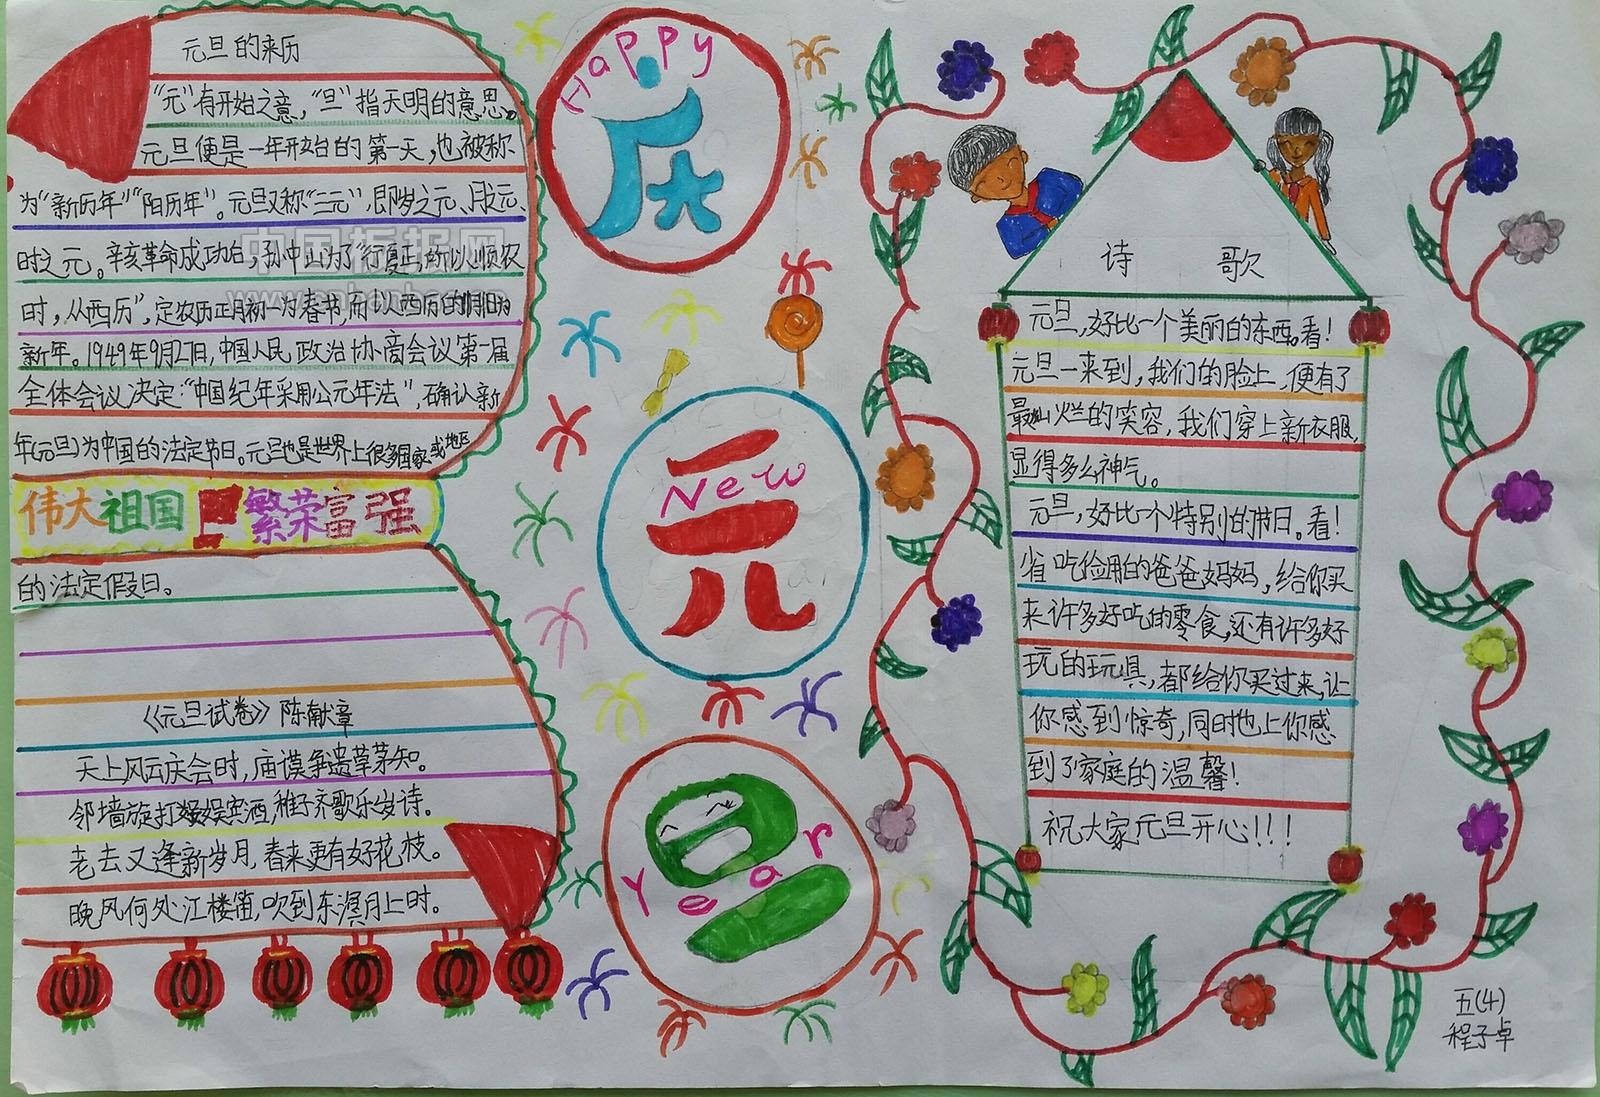 元旦的来历
"元"有开始之意，"旦"指天明的意思。
元旦便是一年开始的第一天，也被称
为"新历年""阳历年"。元旦又称"三元"，即岁之元、月之元、
时之元。辛亥革命成功后，孙中山为了"行夏正，所以顺农
时，从西历"，定农历正月初一为春节，而以西历的1月1日为
新年。1949年9月27日，中国人民政治协商会议第一届
全体会议决定："中国纪年采用公元年法"，确认新
年(元旦)为中国的法定节日。元旦也是世界上很多国家或地区
伟大祖国 繁荣富强
的法定假日。
《元旦试卷》陈献章
天上风云庆会时，庙谟争遗草茅知。
邻墙旋打娱宾酒，稚子齐歌乐岁诗。
老去又逢新岁月，春来更有好花枝。
晚风何处江楼笛，吹到东溟月上时。
Happy
庆
New
元
Year
旦
诗 歌
元旦，好比一个美丽的东西。看！
元旦一来到，我们的脸上，便有了
最灿烂的笑容，我们穿上新衣服，
显得多么神气。
元旦，好比一个特别的节日。看！
省吃俭用的爸爸妈妈，给你买
来许多好吃的零食，还有许多好
玩的玩具，都给你买过来，让
你感到惊奇，同时也上你感
到了家庭的温馨！
祝大家元旦开心！！！
五(4)
程子卓
中国板报网